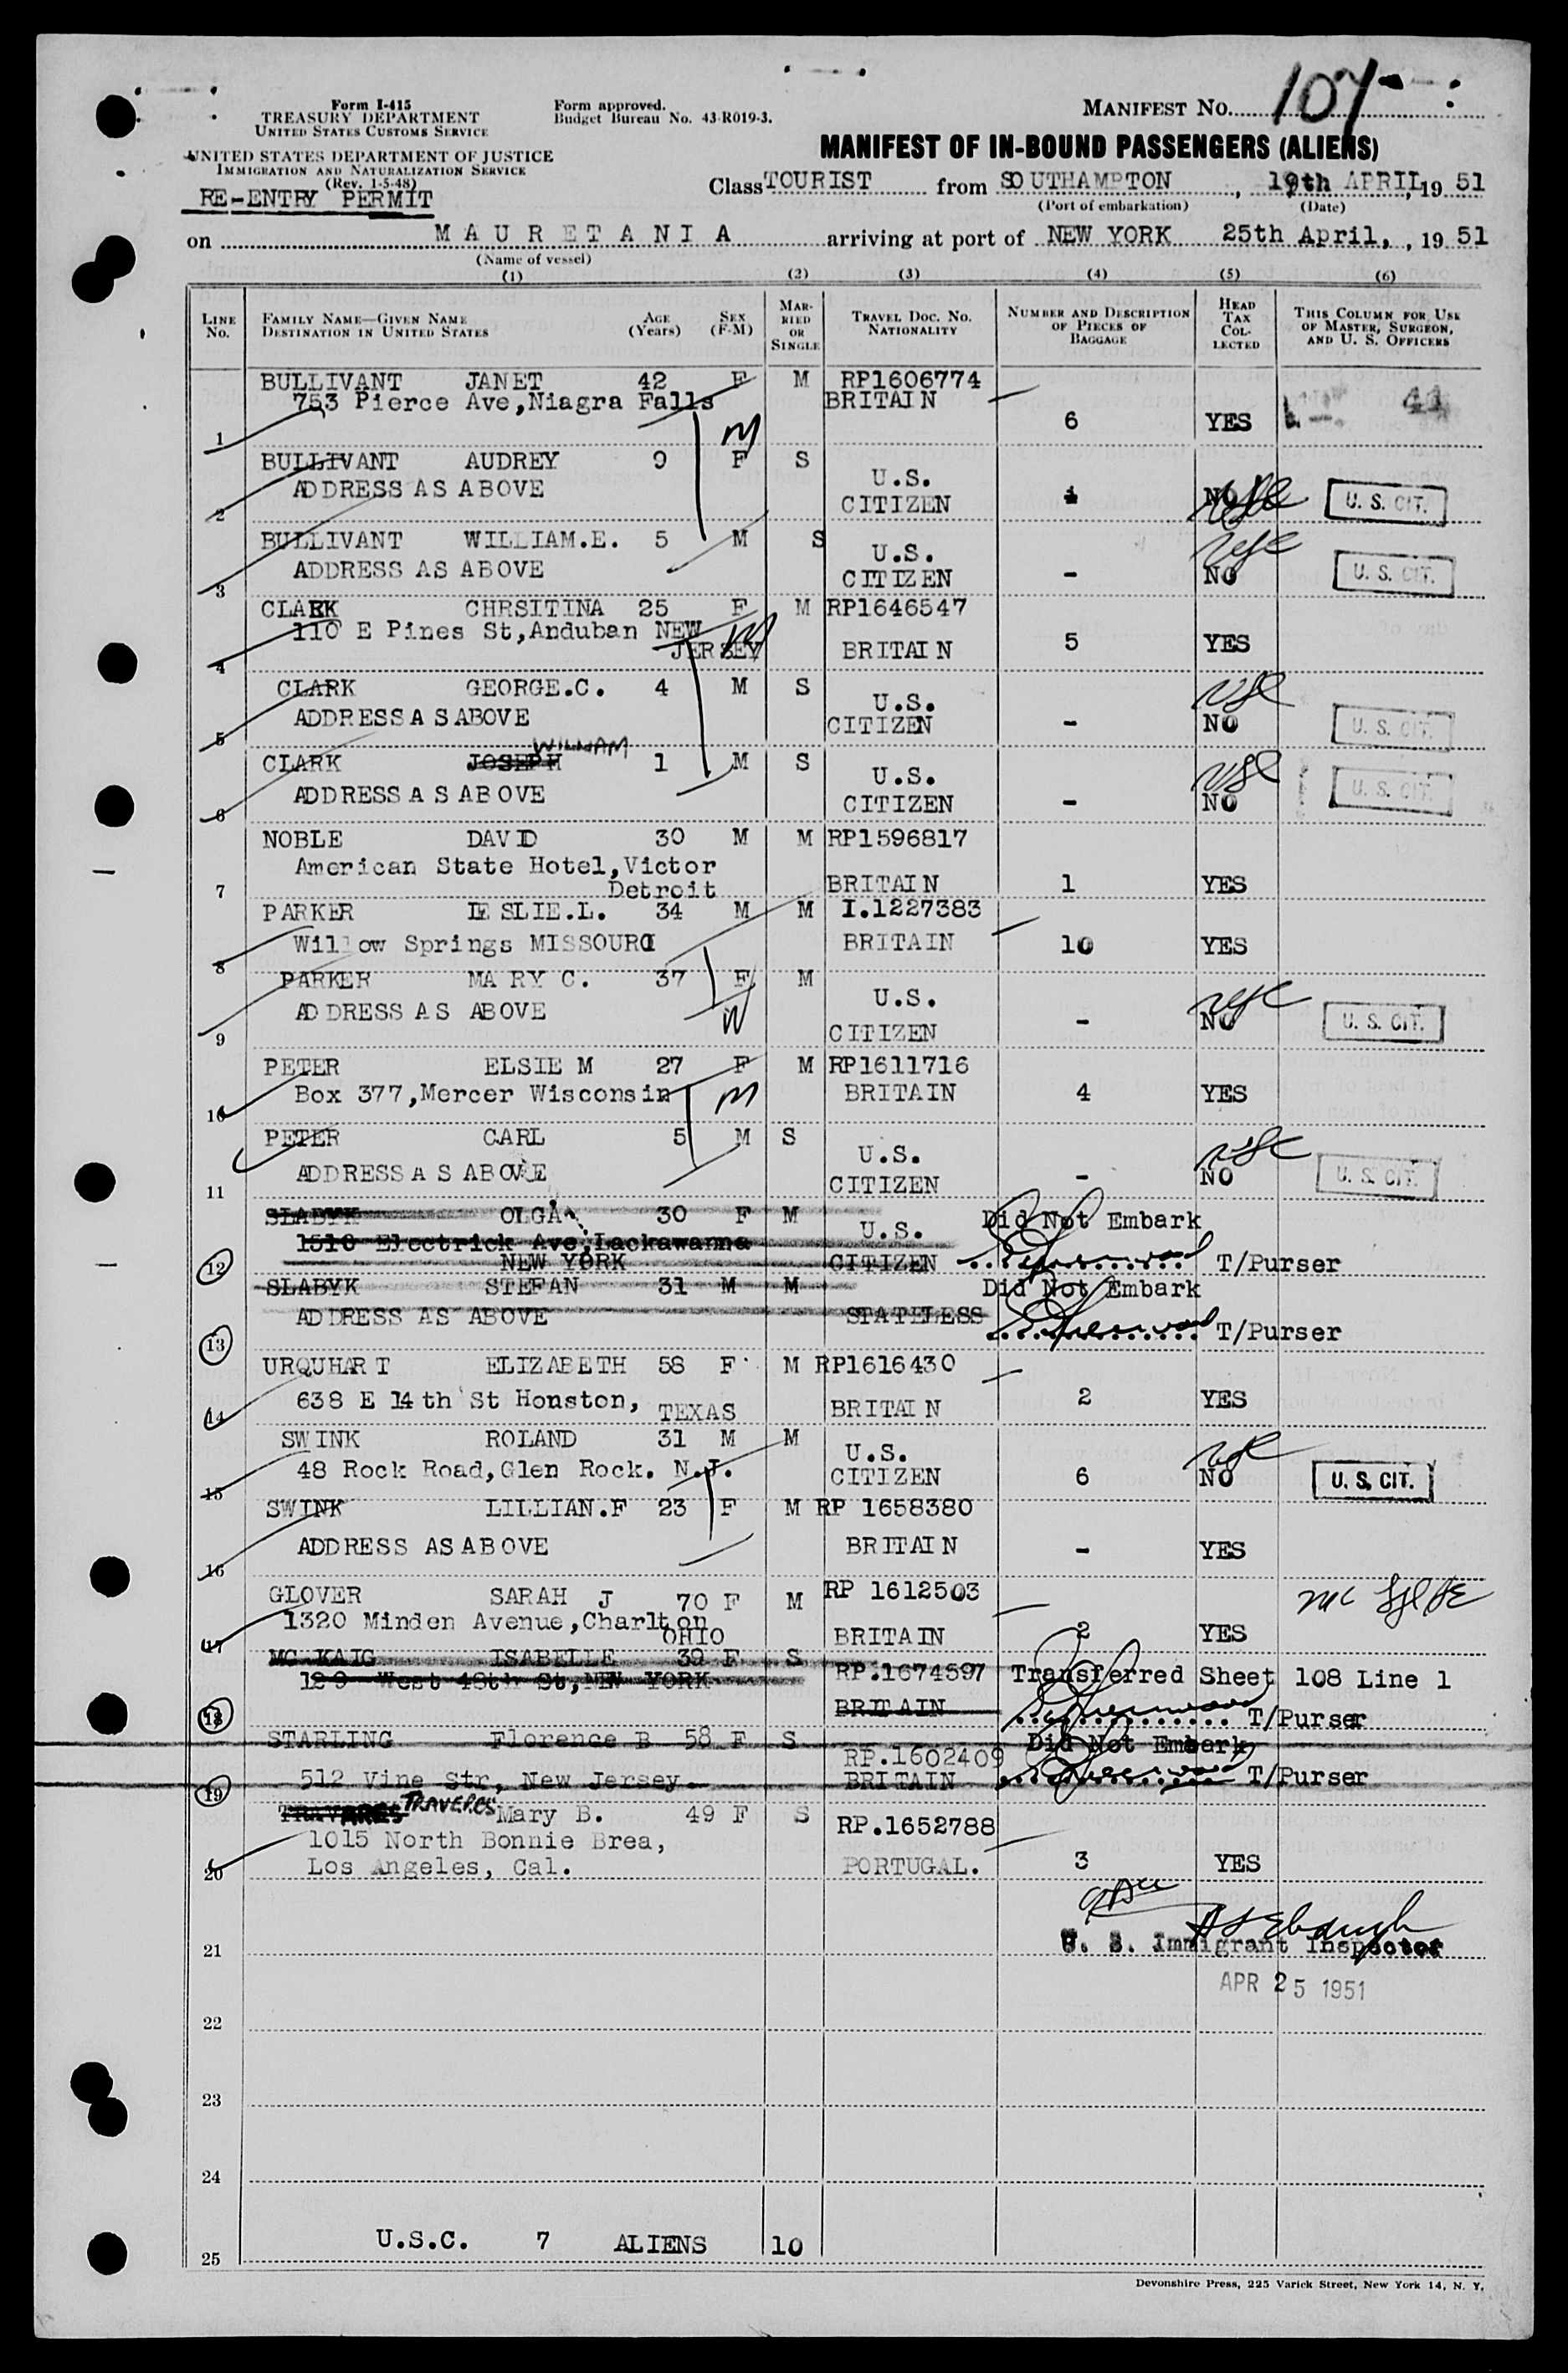 Form I-415
TREASURY DEPARTMENT
UNITED STATES CUSTOMS SERVICE
UNITED STATES DEPARTMENT OF JUSTICE
IMMIGRATION AND NATURALIZATION SERVICE
(Rev. 1-5-48)
RE-ENTRY PERMIT
Form approved.
Budget Bureau No. 43-R019-3.
MANIFEST No. 107
MANIFEST OF IN-BOUND PASSENGERS (ALIENS)
Class TOURIST from SOUTHAMPTON, 19th APRIL, 19 51
(Port of embarkation) (Date)
on MAURETANIA arriving at port of NEW YORK 25th April, , 19 51
(Name of vessel)
(1) (2) (3) (4) (5) (6)
LINE No. FAMILY NAME—GIVEN NAME DESTINATION IN UNITED STATES AGE (Years) SEX (F-M) MARRIED OR SINGLE TRAVEL DOC. NO. NATIONALITY NUMBER AND DESCRIPTION OF PIECES OF BAGGAGE HEAD TAX COLLECTED THIS COLUMN FOR USE OF MASTER, SURGEON, AND U. S. OFFICERS
BULLIVANT JANET 42 F M RP1606774
753 Pierce Ave,Niagra Falls BRITAIN 41
1 M 6 YES
BULLIVANT AUDREY 9 F S U.S.
2 ADDRESS AS ABOVE CITIZEN NO usc U. S. CIT.
BULLIVANT WILLIAM.E. 5 M S U.S. usc
3 ADDRESS AS ABOVE CITIZEN - NO U. S. CIT.
CLARK CHRSITINA 25 F M RP1646547
110 E Pines St,Anduban NEW
4 JERSEY M BRITAIN 5 YES
CLARK GEORGE.C. 4 M S U.S. usc
5 ADDRESS AS ABOVE CITIZEN - NO U. S. CIT.
WILLIAM
CLARK JOSEPH 1 M S U.S. usc
6 ADDRESS AS ABOVE CITIZEN - NO U. S. CIT.
NOBLE DAVID 30 M M RP1596817
American State Hotel,Victor
7 Detroit BRITAIN 1 YES
PARKER LESLIE.L. 34 M M I.1227383
8 Willow Springs MISSOURI BRITAIN 10 YES
PARKER MARY C. 37 F M U.S. usc
9 ADDRESS AS ABOVE CITIZEN - NO U. S. CIT.
PETER ELSIE M 27 F M RP1611716
10 Box 377,Mercer Wisconsin M BRITAIN 4 YES
PETER CARL 5 M S U.S. usc
11 ADDRESS AS ABOVE CITIZEN - NO U. S. CIT.
SLABYK OLGA 30 F M U.S. Did Not Embark
1510 Electrick Ave,Lackawanna
12 NEW YORK CITIZEN T/Purser
SLABYK STEFAN 31 M M Did Not Embark
13 ADDRESS AS ABOVE STATELESS T/Purser
URQUHART ELIZABETH 58 F M RP1616430
14 638 E 14th St Honston, TEXAS BRITAIN 2 YES
SWINK ROLAND 31 M M U.S. usc
15 48 Rock Road,Glen Rock. N.J. CITIZEN 6 NO U. S. CIT.
SWINK LILLIAN.F 23 F M RP 1658380
16 ADDRESS AS ABOVE BRITAIN - YES
GLOVER SARAH J 70 F M RP 1612503
1320 Minden Avenue,Charlton
17 OHIO BRITAIN 2 YES
MC KAIG ISABELLE 39 F S RP.1674597 Transferred Sheet 108 Line 1
West 48th St,NEW YORK
18 BRITAIN T/Purser
STARLING Florence B 58 F S RP.1602409 Did Not Embark
19 512 Vine Str, New Jersey. BRITAIN T/Purser
TRAVERES Mary B. 49 F S RP.1652788
1015 North Bonnie Brea,
20 Los Angeles, Cal. PORTUGAL. 3 YES
21 U. S. Immigrant Inspector
APR 25 1951
22
23
24
U.S.C. 7 ALIENS 10
25
Devonshire Press, 225 Varick Street, New York 14, N. Y.